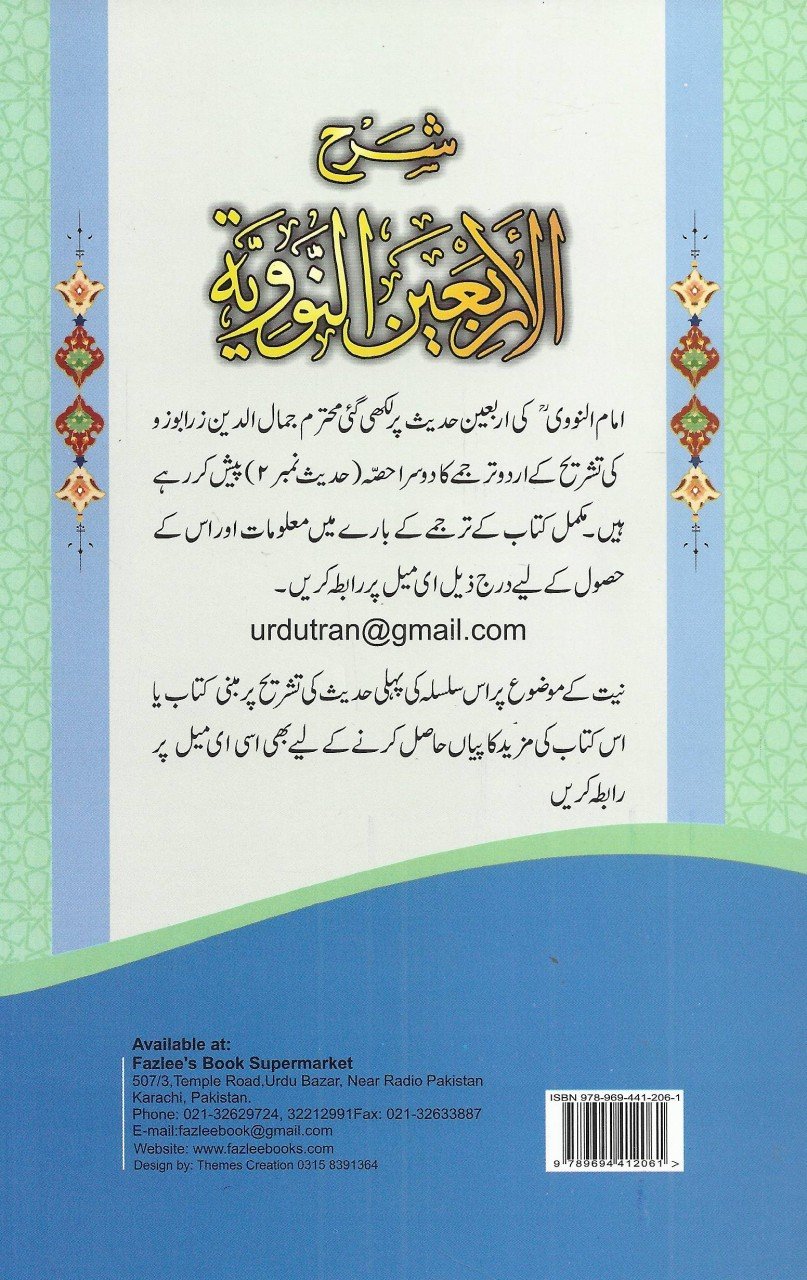 شرح
الأربعين النَّوَوِيَّة
امام النووی ؒ کی اربعین حدیث پر لکھی گئی محترم جمال الدین زرابوزو
کی تشریح کے اردو ترجمے کا دوسرا حصّہ (حدیث نمبر ۲) پیش کر رہے
ہیں۔ مکمل کتاب کے ترجمے کے بارے میں معلومات اور اس کے
حصول کے لیے درج ذیل ای میل پر رابطہ کریں۔
urdutran@gmail.com
نیت کے موضوع پر اس سلسلہ کی پہلی حدیث کی تشریح پر مبنی کتاب یا
اس کتاب کی مزید کاپیاں حاصل کرنے کے لیے بھی اسی ای میل پر
رابطہ کریں
Available at:
Fazlee's Book Supermarket
507/3,Temple Road,Urdu Bazar, Near Radio Pakistan
Karachi, Pakistan.
Phone: 021-32629724, 32212991Fax: 021-32633887
E-mail:fazleebook@gmail.com
Website: www.fazleebooks.com
Design by: Themes Creation 0315 8391364
ISBN 978-969-441-206-1
9 789694 412061 >